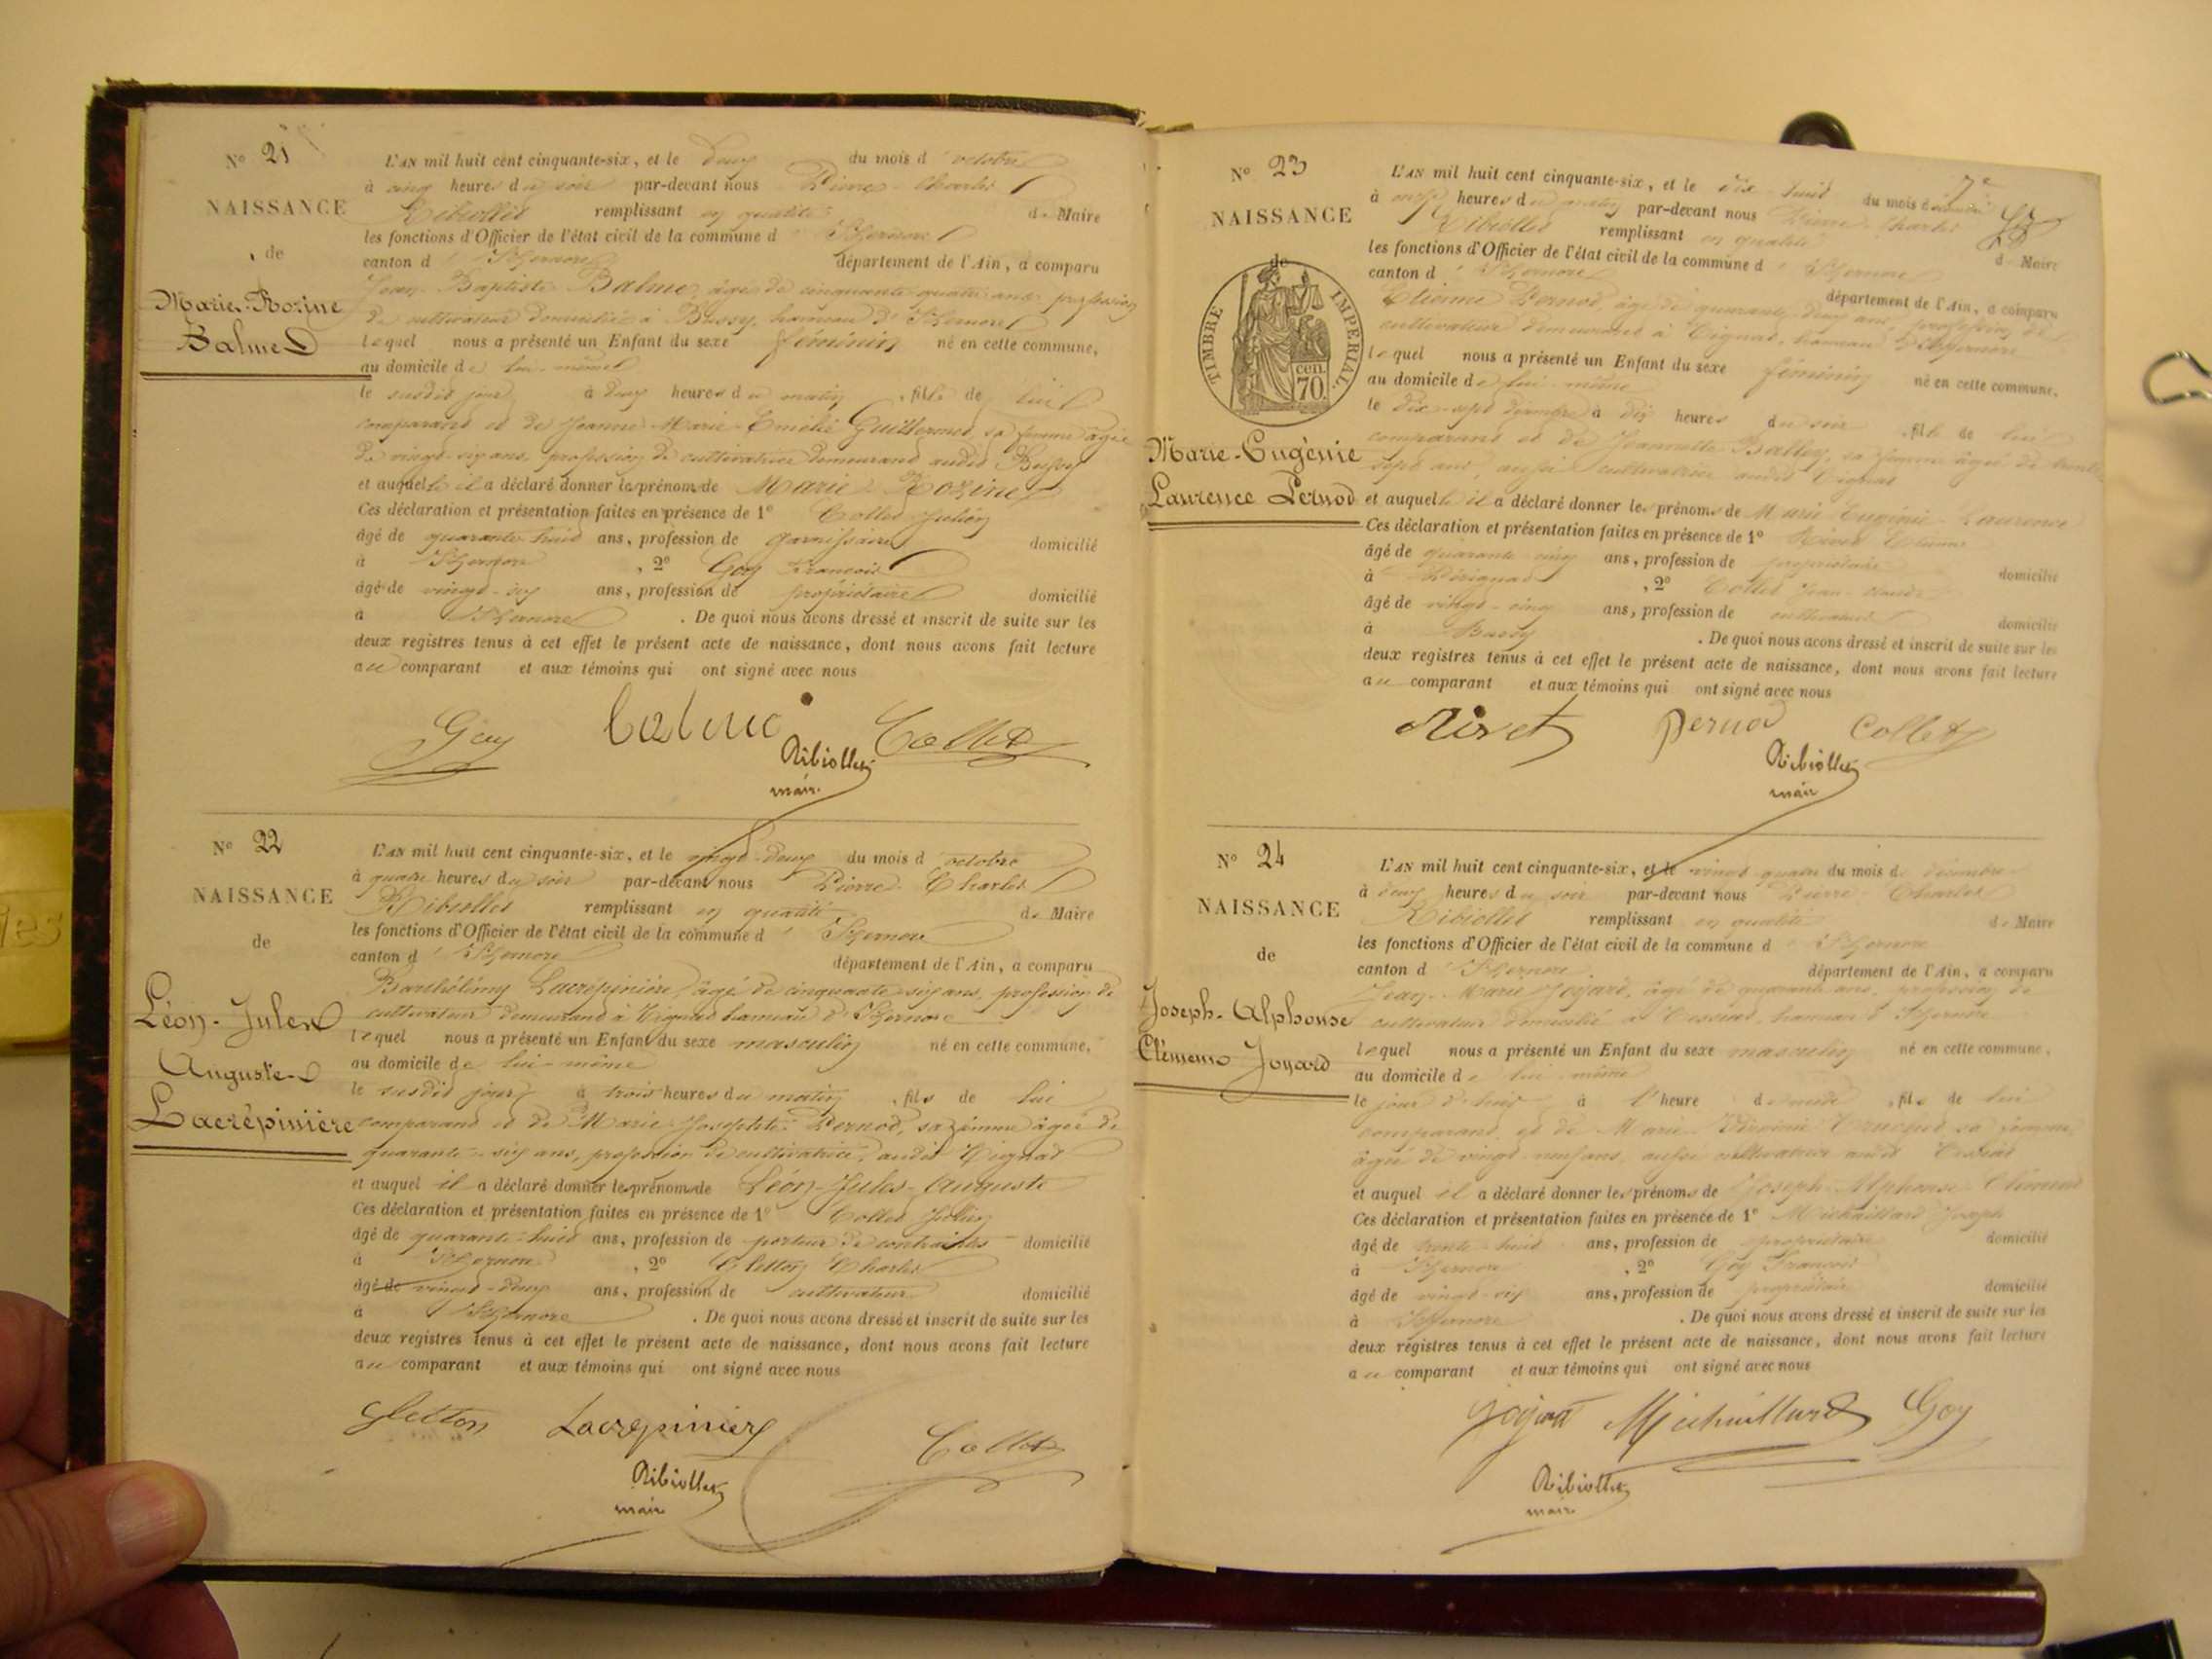 N° 21
NAISSANCE
de
Marie-Rozine
Balme
L'AN mil huit cent cinquante-six, et le deux du mois d'octobre
à cinq heures du soir par-devant nous Pierre-Charles
Ribiollet remplissant en qualité de Maire
les fonctions d'Officier de l'état civil de la commune d'Izernore
canton d'Izernore département de l'Ain, a comparu
Jean-Baptiste Balme, âgé de cinquante-quatre ans, profession
de cultivateur domicilié à Bussy, hameau d'Izernore
lequel nous a présenté un Enfant du sexe féminin né en cette commune,
au domicile de lui-même
le susdit jour à deux heures du matin, fille de lui
comparant et de Jeanne-Marie-Emélie Guillermet, sa femme âgée
de vingt-six ans, profession de cultivatrice demeurant audit Bussy
et auquelle il a déclaré donner les prénoms de Marie Rozine
Ces déclaration et présentation faites en présence de 1° Collet Julien
âgé de quarante-huit ans, profession de garnissaire domicilié
à Izernore, 2° Goy François
âgé de vingt-six ans, profession de propriétaire domicilié
à Izernore. De quoi nous avons dressé et inscrit de suite sur les
deux registres tenus à cet effet le présent acte de naissance, dont nous avons fait lecture
au comparant et aux témoins qui ont signé avec nous
Goy balme Collet
Ribiollet
maire
N° 22
NAISSANCE
de
Léon-Jules
Auguste
Lacrépinière
L'AN mil huit cent cinquante-six, et le vingt-deux du mois d'octobre
à quatre heures du soir par-devant nous Pierre-Charles
Ribiollet remplissant en qualité de Maire
les fonctions d'Officier de l'état civil de la commune d'Izernore
canton d'Izernore département de l'Ain, a comparu
Barthélémy Lacrépinière, âgé de cinquante-six ans, profession de
cultivateur demeurant à Tignat hameau d'Izernore
lequel nous a présenté un Enfant du sexe masculin né en cette commune,
au domicile de lui-même
le susdit jour à trois heures du matin, fils de lui
comparant et de Marie-Josephte Pernod, sa femme âgée de
quarante-six ans, profession de cultivatrice, audit Tignat
et auquel il a déclaré donner les prénoms de Léon-Jules-Auguste
Ces déclaration et présentation faites en présence de 1° Collet Julien
âgé de quarante-huit ans, profession de porteur de contraintes domicilié
à Izernore, 2° Gletton Charles
âgé de vingt-deux ans, profession de cultivateur domicilié
à Izernore. De quoi nous avons dressé et inscrit de suite sur les
deux registres tenus à cet effet le présent acte de naissance, dont nous avons fait lecture
au comparant et aux témoins qui ont signé avec nous
Gletton Lacrepiniere Collet
Ribiollet
maire
7e
N° 23
NAISSANCE
de
TIMBRE IMPERIAL
70 cen.
Marie-Eugénie
Laurence Pernod
L'AN mil huit cent cinquante-six, et le dix-huit du mois décembre
à onze heures du matin par-devant nous Pierre-Charles
Ribiollet remplissant en qualité de Maire
les fonctions d'Officier de l'état civil de la commune d'Izernore
canton d'Izernore département de l'Ain, a comparu
Etienne Pernod, âgé de quarante-deux ans, profession de
cultivateur demeurant à Tignat, hameau d'Izernore
lequel nous a présenté un Enfant du sexe féminin né en cette commune,
au domicile de lui-même
le dix-sept décembre à dix heures du soir, fille de lui
comparant et de Jeannette Balley, sa femme âgée de trente
sept ans, aussi cultivatrice audit Tignat
et auquelle il a déclaré donner les prénoms de Marie Eugénie Laurence
Ces déclaration et présentation faites en présence de 1° Rivet Etienne
âgé de quarante-cinq ans, profession de propriétaire domicilié
à Pérignat, 2° Collet Jean-Claude
âgé de vingt-cinq ans, profession de cultivateur domicilié
à Bussy. De quoi nous avons dressé et inscrit de suite sur les
deux registres tenus à cet effet le présent acte de naissance, dont nous avons fait lecture
au comparant et aux témoins qui ont signé avec nous
Rivet pernod Collet
Ribiollet
maire
N° 24
NAISSANCE
de
Joseph-Alphonse
Clément Joyard
L'AN mil huit cent cinquante-six, et le vingt-quatre du mois de décembre
à deux heures du soir par-devant nous Pierre-Charles
Ribiollet remplissant en qualité de Maire
les fonctions d'Officier de l'état civil de la commune d'Izernore
canton d'Izernore département de l'Ain, a comparu
Jean-Marie Joyard, âgé de quarante ans, profession de
cultivateur domicilié à Cessiat, hameau d'Izernore
lequel nous a présenté un Enfant du sexe masculin né en cette commune,
au domicile de lui-même
le jour d'hui à l'heure de midi, fils de lui
comparant, et de Marie sa femme,
âgée de vingt-neuf ans, aussi cultivatrice audit Cessiat
et auquel il a déclaré donner les prénoms de Joseph-Alphonse-Clément
Ces déclaration et présentation faites en présence de 1° Michaillard Joseph
âgé de trente-huit ans, profession de propriétaire domicilié
à Izernore, 2° Goy François
âgé de vingt-six ans, profession de propriétaire domicilié
à Izernore. De quoi nous avons dressé et inscrit de suite sur les
deux registres tenus à cet effet le présent acte de naissance, dont nous avons fait lecture
au comparant et aux témoins qui ont signé avec nous
joyard Michaillard Goy
Ribiollet
maire